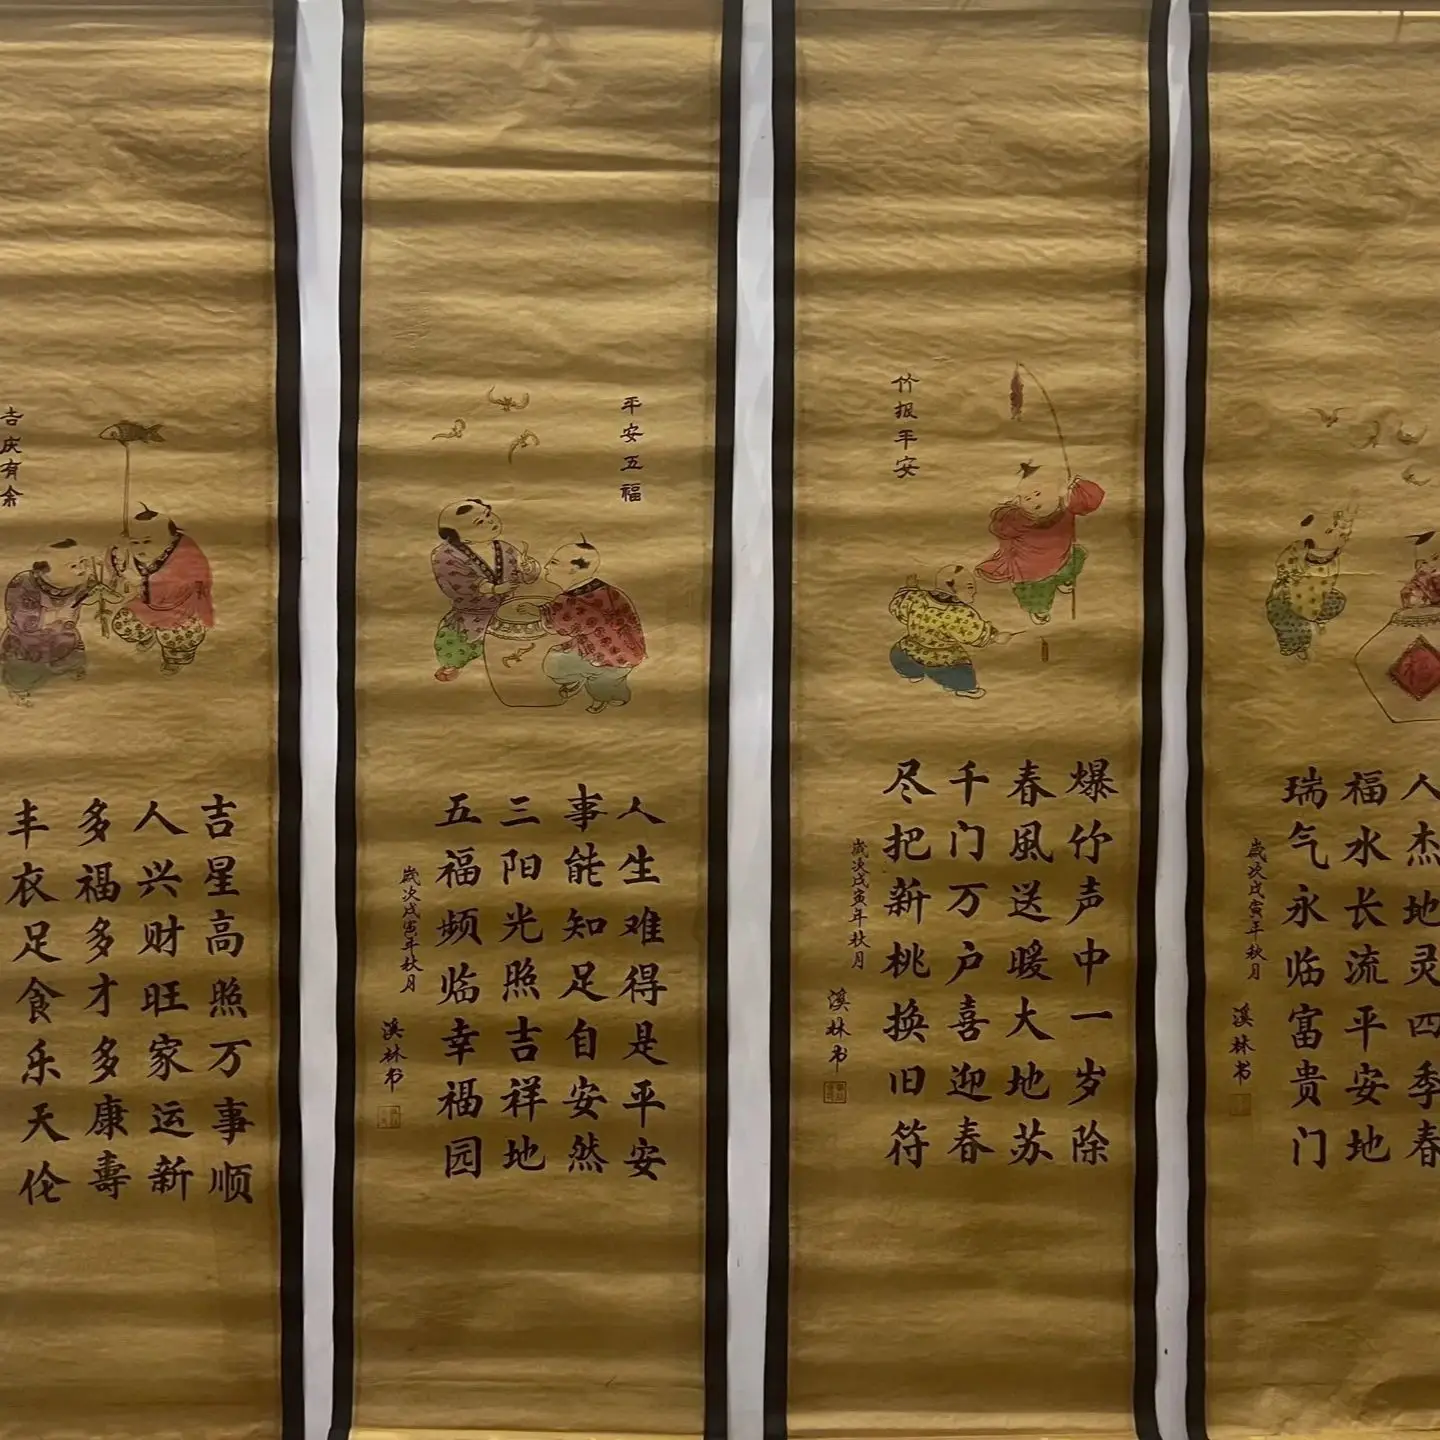 吉庆有余
吉星高照万事顺
人兴财旺家运新
多福多才多康寿
丰衣足食乐天伦
平安五福
人生难得是平安
事能知足自安然
三阳光照吉祥地
五福频临幸福园
歲次戊寅年秋月
溪林书
竹报平安
爆竹声中一岁除
春風送暖大地苏
千门万户喜迎春
尽把新桃换旧符
歲次戊寅年秋月
溪林书
人杰地灵四季春
福水长流平安地
瑞气永临富贵门
歲次戊寅年秋月
溪林书